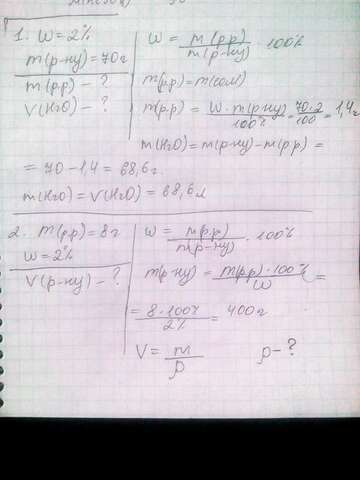 1. W = 2%
m(р-ну) = 70г
m(р.р) - ?
V(H2O) - ?
W = m(р.р) / m(р-ну) · 100%
m(р.р) = m(солі)
m(р.р) = W · m(р-ну) / 100% = 70·2 / 100 = 1,4г
m(H2O) = m(р-ну) - m(р.р) =
= 70 - 1,4 = 68,6г.
m(H2O) = V(H2O) = 68,6л
2. m(р.р) = 8г
W = 2%
V(р-ну) - ?
W = m(р.р) / m(р-ну) · 100%
m(р-ну) = m(р.р) · 100% / W =
= 8 · 100% / 2% = 400г
V = m / ρ
ρ - ?